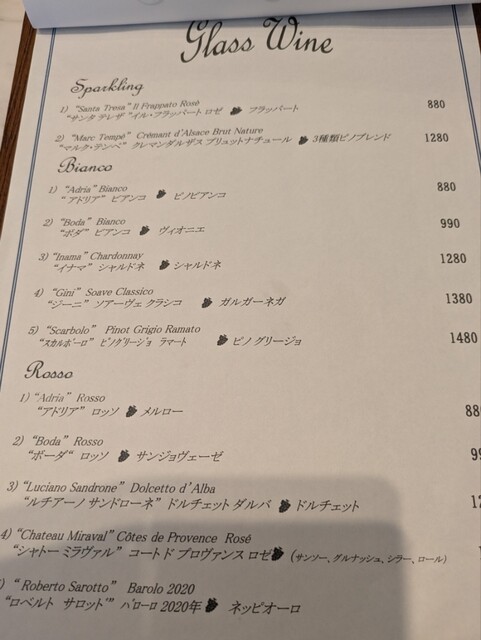 Glass Wine
Sparkling
1) "Santa Tresa" Il Frappato Rosé
"サンタ テレザ "イル・フラッパート ロゼ フラッパート 880
2) "Marc Tempé" Crémant d'Alsace Brut Nature
"マルク・テンペ" クレマンダルザス ブリュットナチュール 3種類ピノブレンド 1280
Bianco
1) "Adria" Bianco
"アドリア" ビアンコ ピノビアンコ 880
2) "Boda" Bianco
"ボダ" ビアンコ ヴィオニエ 990
3) "Inama" Chardonnay
"イナマ" シャルドネ シャルドネ 1280
4) "Gini" Soave Classico
"ジーニ" ソアーヴェ クラシコ ガルガーネガ 1380
5) "Scarbolo" Pinot Grigio Ramato
"スカルボーロ" ピノグリージョ ラマート ピノ グリージョ 1480
Rosso
1) "Adria" Rosso
"アドリア" ロッソ メルロー 88
2) "Boda" Rosso
"ボーダ" ロッソ サンジョヴェーゼ 99
3) "Luciano Sandrone" Dolcetto d'Alba
"ルチアーノ サンドローネ" ドルチェット ダルバ ドルチェット 12
4) "Chateau Miraval" Côtes de Provence Rosé
"シャトー ミラヴァル" コート ド プロヴァンス ロゼ (サンソー、グルナッシュ、シラー、ロール)
) "Roberto Sarotto" Barolo 2020
"ロベルト サロット" バローロ 2020年 ネッビオーロ